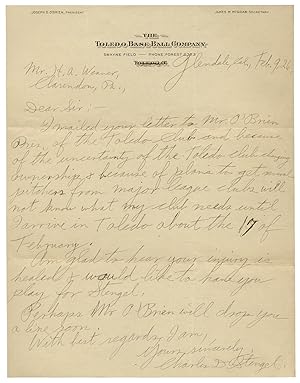 JOSEPH D. O'BRIEN, PRESIDENT
JAMES R. McGRAW, SECRETARY
THE
TOLEDO BASE BALL COMPANY
SWAYNE FIELD PHONE FOREST
TOLEDO, O.
Glendale, Cal, Feb. 9, 26
Mr. H. A. Weaver,
Clarendon, Pa.,
Dear Sir:-
I mailed your letter to Mr. O'Brien
Pres. of the Toledo Club and because
of the uncertainty of the Toledo club changing
ownership & because of plans to get several
pitchers from major league clubs will
not know what my club needs until
I arrive in Toledo about the 17 of
February.
Am glad to hear your injury is
healed & would like to have you
play for Stengel.
Perhaps Mr O'Brien will drop you
a line soon.
With best regards, I am,
Yours sincerely,
Charles D. Stengel.